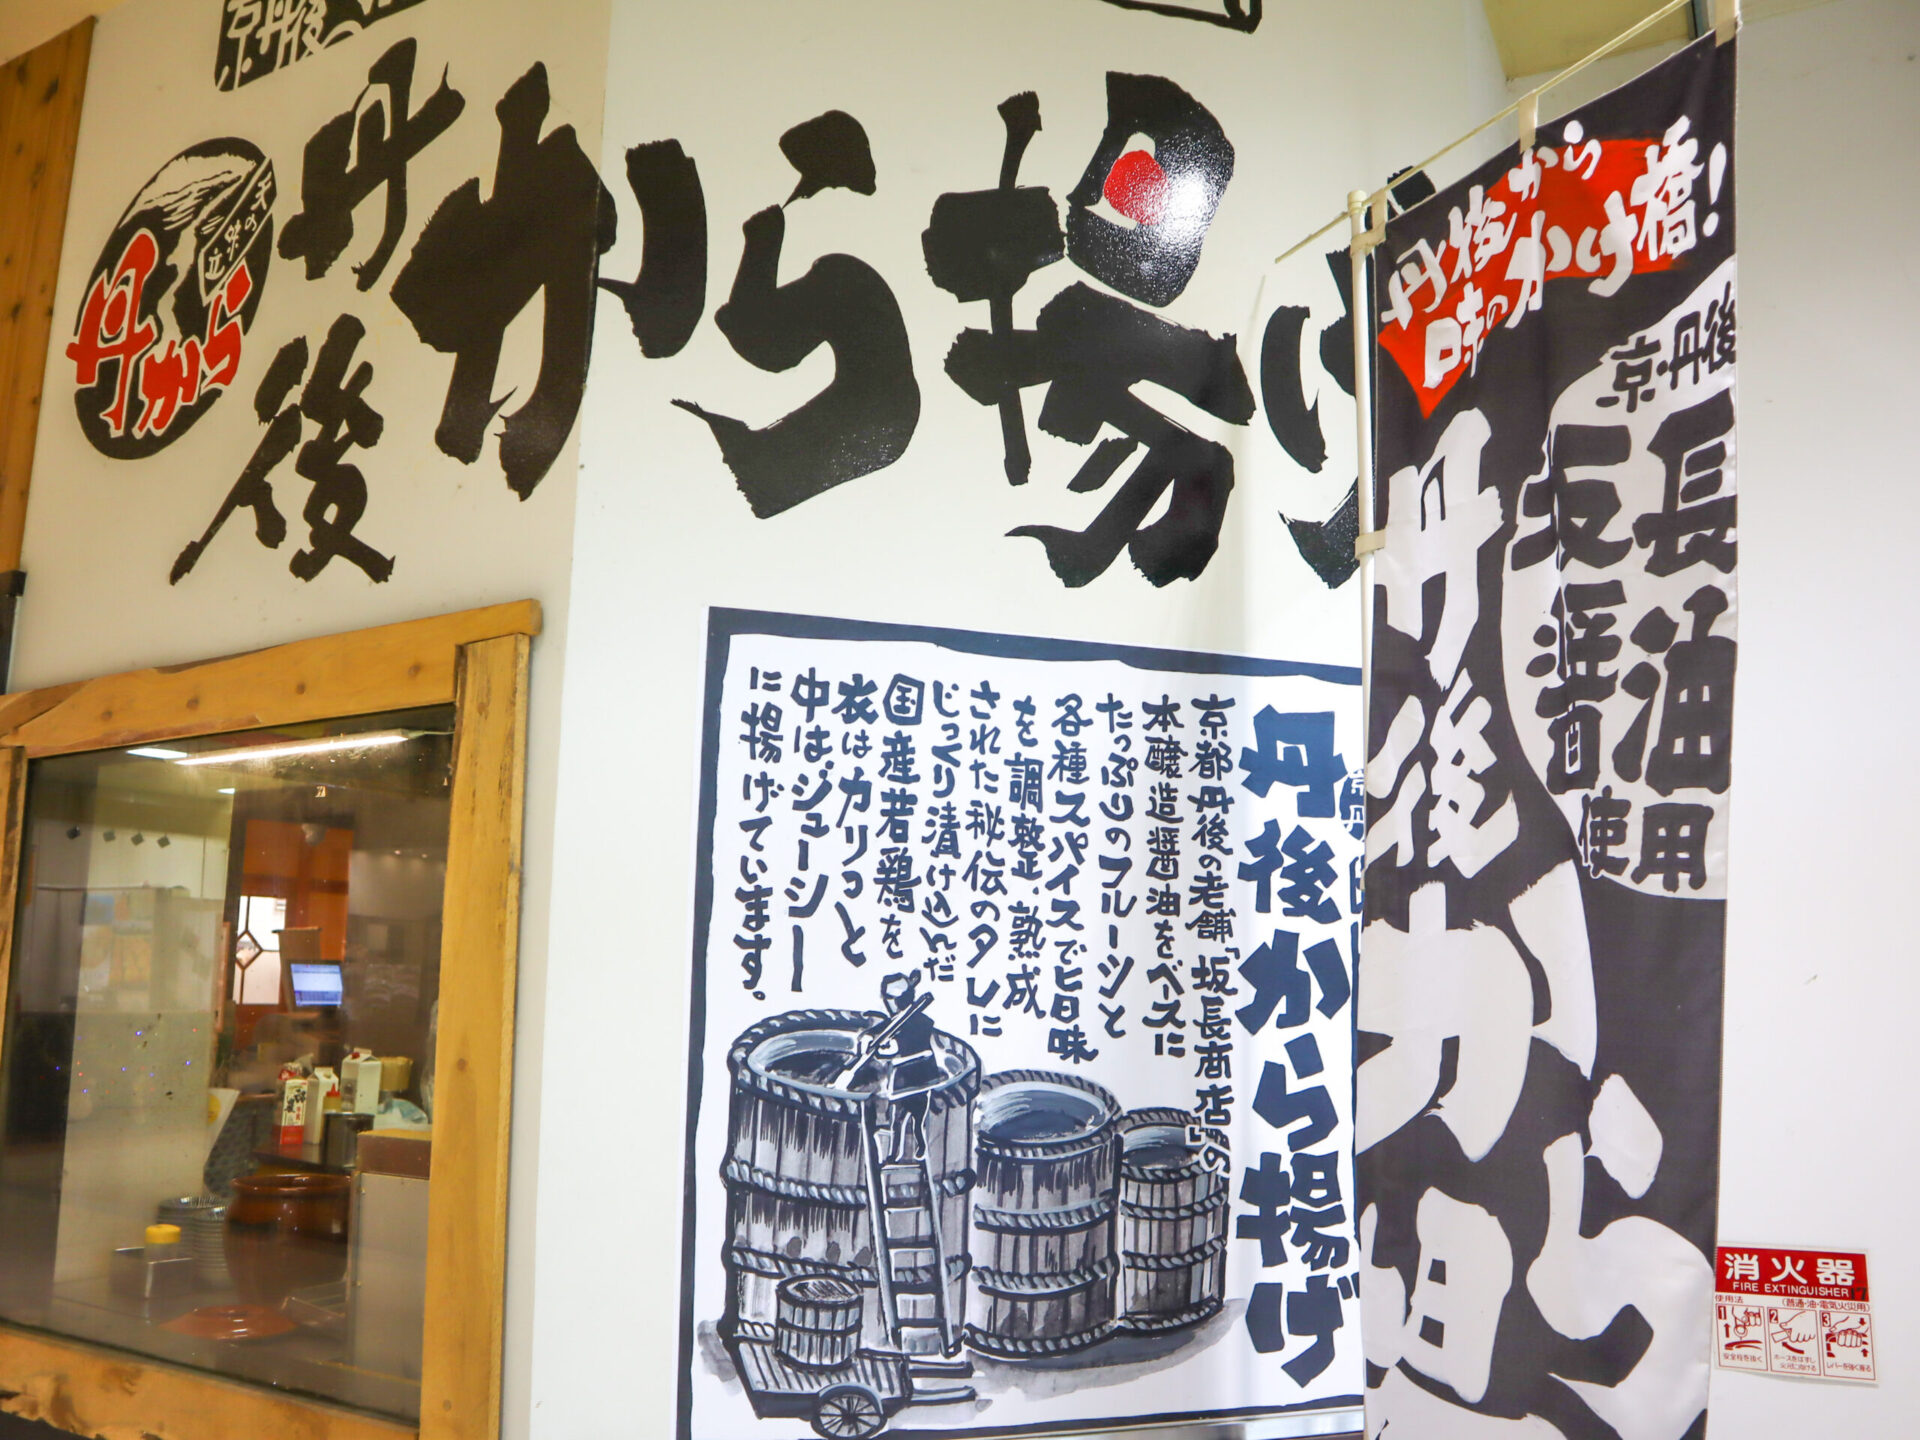 京丹後
天の
味
立
丹から
丹後から揚げ
丹後から
味のかけ橋!
京・丹後
坂長
醤油
使用
丹後から揚
丹後から揚げ
京都丹後の老舗「坂長商店」の
本醸造醤油をベースに
たっぷりのフルーツと
各種スパイスで旨味
を調整、熟成
された秘伝のタレに
じっくり漬け込んだ
国産若鶏を
衣はカリっと
中はジューシー
に揚げています。
消火器
FIRE EXTINGUISHER
使用法
(普通・油・電気火災用)
1
2
3
安全栓を抜く
ホースをはずし
火元に向ける
レバーを強く握る